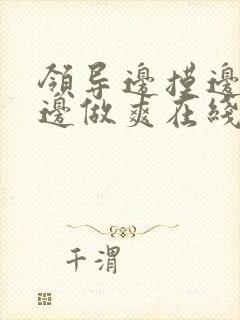 領导邊摸邊
邊做爽在綫
千渭